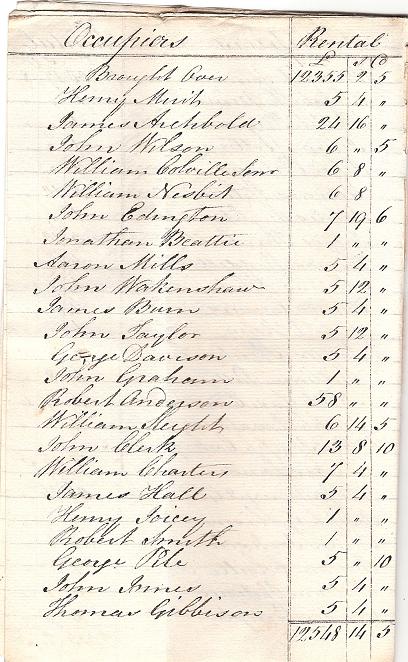 Occupiers Rental
£ S D
Brought Over 12355 2 5
Henry Muit 5 4 "
James Archbold 24 16 "
John Wilson 6 " 5
William Colville Senr 6 8 "
William Nesbit 6 8
John Edington 7 19 6
Jonathan Beattie 1 " "
Aaron Mills 5 4 "
John Wakenshaw 5 12 "
James Burn 5 4 "
John Taylor 5 12 "
George Davison 5 4 "
John Graham 1 " "
Robert Anderson 58 " "
William Height 6 14 5
John Clerk 13 8 10
William Charters 7 4 "
James Hall 5 4 "
Henry Joicey 1 " "
Robert Smith 1 " "
George Pile 5 " 10
John Innes 5 4 "
Thomas Gibbison 5 4 "
12548 14 5